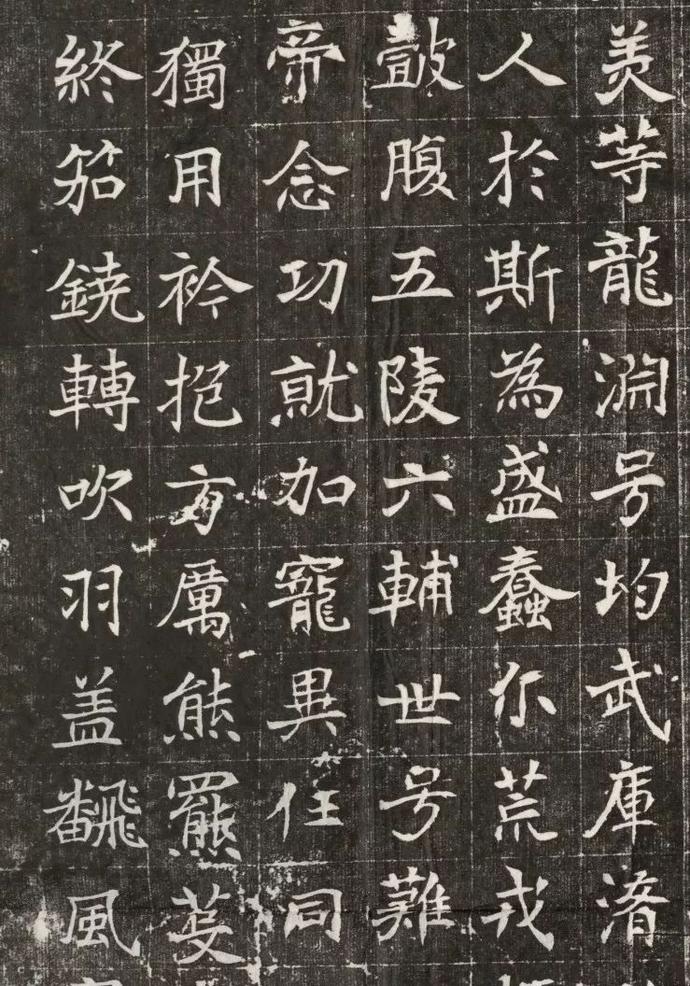 羙等龍淵号均武庫湻
人於斯為盛蠢尒荒戎
鼓腹五陵六輔世号難
帝念功就加寵異任同
獨用衿抱方厲熊羆蔓
終笳鐃轉吹羽盖飜風